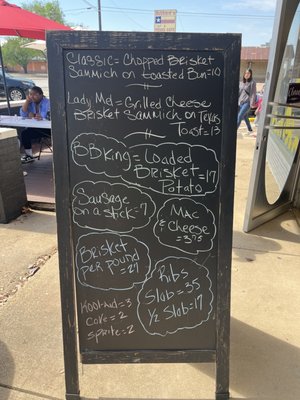 Classic = Chopped Brisket
Sammich on toasted Bun = 10
Lady Md = Grilled Cheese
Brisket Sammich on Texas
Toast = 13
BBKing = Loaded
Brisket = 17
Potato
Sausage
on a stick = 7
Mac
& Cheese
= 3.75
Brisket
per pound
= 27
Ribs
Slab = 35
1/2 Slab = 17
Kool-Aid = 3
Coke = 2
Sprite = 2